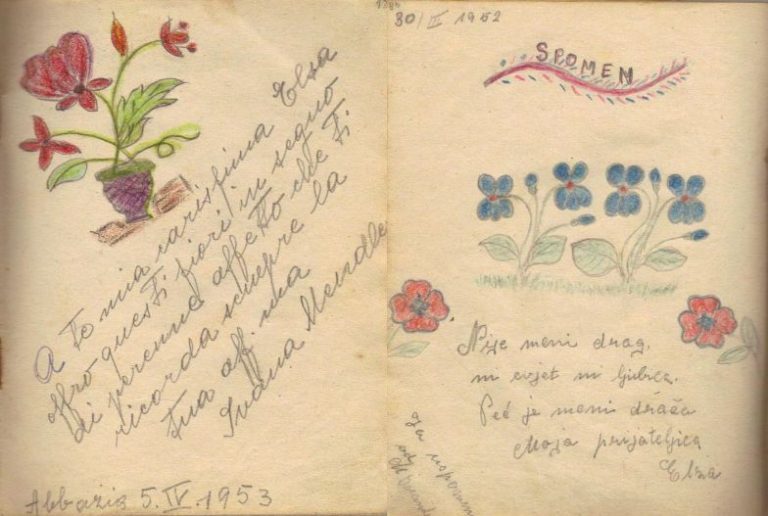 A te mia carissima Elsa
offro questi fiori in segno
di perenne affetto che ti
ricorda sempre la
tua aff. ma
Ivana
Abbazia 5.IV.1953
30/III 1952
SPOMEN
Nije meni drag,
ni cvjet ni ljubica.
Već je meni draža
Moja prijateljica
Elza
Za uspomenu
od